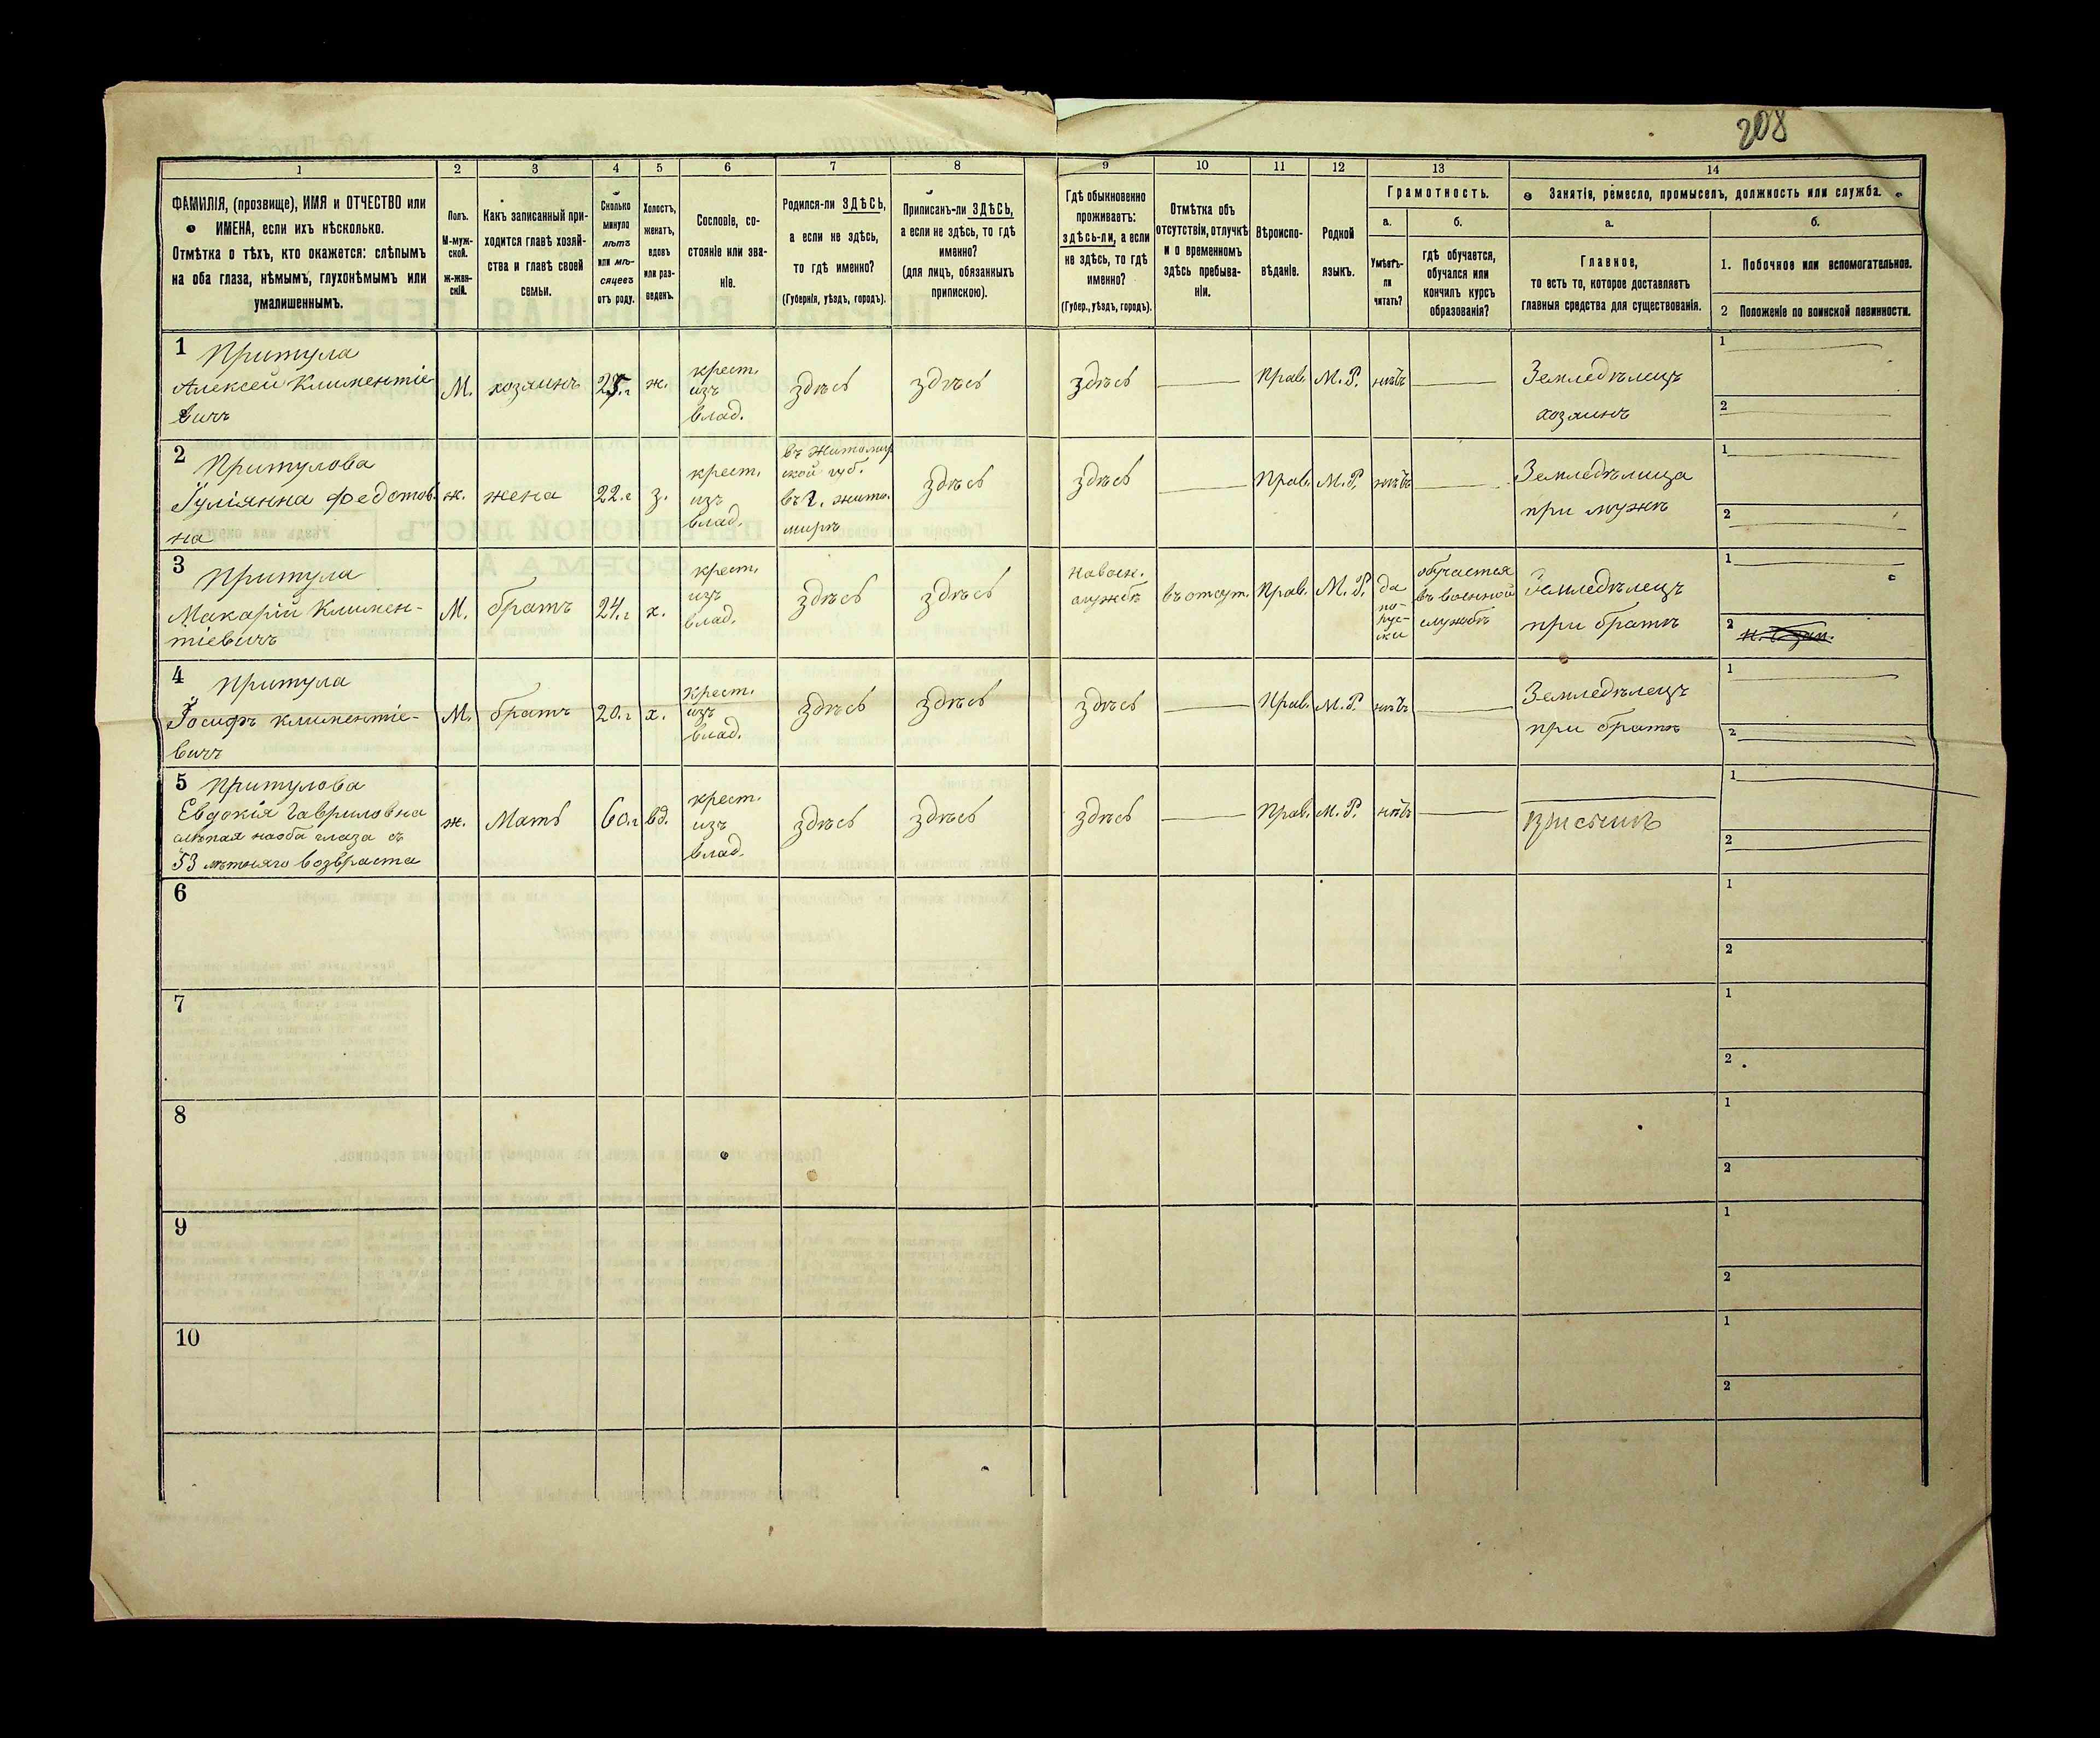 208
1
2
3
4
5
6
7
8
9
10
11
12
13
14
ФАМИЛІЯ, (прозвище), ИМЯ и ОТЧЕСТВО или
ИМЕНА, если ихъ нѣсколько.
Отмѣтка о тѣхъ, кто окажется: слѣпымъ
на оба глаза, нѣмымъ, глухонѣмымъ или
умалишеннымъ.
Полъ.
М-муж-
ской.
ж-жен-
скій.
Какъ записанный при-
ходится главѣ хозяй-
ства и главѣ своей
семьи.
Сколько
минуло
лѣтъ
или мѣ-
сяцевъ
отъ роду.
Холостъ,
женатъ,
вдовъ
или раз-
веденъ.
Сословіе, со-
стояніе или зва-
ніе.
Родился-ли ЗДѢСЬ,
а если не здѣсь,
то гдѣ именно?
(Губернія, уѣздъ, городъ).
Приписанъ-ли ЗДѢСЬ,
а если не здѣсь, то гдѣ
именно?
(для лицъ, обязанныхъ
припискою).
Гдѣ обыкновенно
проживаетъ:
здѣсь-ли, а если
не здѣсь, то гдѣ
именно?
(Губер., уѣздъ, городъ).
Отмѣтка объ
отсутствіи, отлучкѣ
и о временномъ
здѣсь пребыва-
ніи.
Вѣроиспо-
вѣданіе.
Родной
языкъ.
Грамотность.
а.
Умѣетъ-
ли
читать?
б.
гдѣ обучается,
обучался или
кончилъ курсъ
образованія?
Занятія, ремесло, промыселъ, должность или служба.
а.
Главное,
то есть то, которое доставляетъ
главныя средства для существованія.
б.
1. Побочное или вспомогательное.
2 Положеніе по воинской повинности.
1 Притула
Алексей Климентіе
вичъ
М.
хозяинъ
25.г
ж.
крест.
изъ
влад.
здѣсь
здѣсь
здѣсь
Прав.
М.Р.
нѣтъ
Земледѣлецъ
хозяинъ
1
2
2 Притулова
Іуліянна Федотов-
на
ж.
жена
22.г
з.
крест.
изъ
влад.
въ Житомир
ской губ.
въ г. Жито-
мирѣ
здѣсь
здѣсь
Прав.
М.Р.
нѣтъ
Земледѣлица
при мужѣ
1
2
3 Притула
Макарій Климен-
тіевичъ
М.
братъ
24.г
х.
крест.
изъ
влад.
здѣсь
здѣсь
на воен.
службѣ
въ отсут.
Прав.
М.Р.
да
по-
рус-
ски
обучается
въ военной
службѣ
Земледѣлецъ
при братѣ
1
2
4 Притула
Іосифъ Климентіе-
вичъ
М.
братъ
20.г
х.
крест.
изъ
влад.
здѣсь
здѣсь
здѣсь
Прав.
М.Р.
нѣтъ
Земледѣлецъ
при братѣ
1
2
5 Притулова
Евдокія Гавриловна
слѣпая на оба глаза съ
53 лѣтняго возвраста
ж.
Мать
60.г
вд.
крест.
изъ
влад.
здѣсь
здѣсь
здѣсь
Прав.
М.Р.
нѣтъ
при сынѣ
1
2
6
1
2
7
1
2
8
1
2
9
1
2
10
1
2